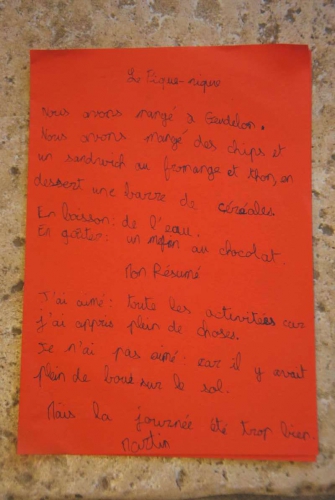 Le Pique-nique
Nous avons mangé à
Nous avons mangé des chips et
un sandwich au fromange et thon, en
dessert une barre de céréales.
En boisson: de l'eau.
En goûter: un au chocolat.
Mon Résumé
J'ai aimé: toute les activitées car
j'ai appris plein de choses.
Je n'ai pas aimé: car il y avait
plein de boue sur le sol.
Mais la journée été trop bien.
Martin